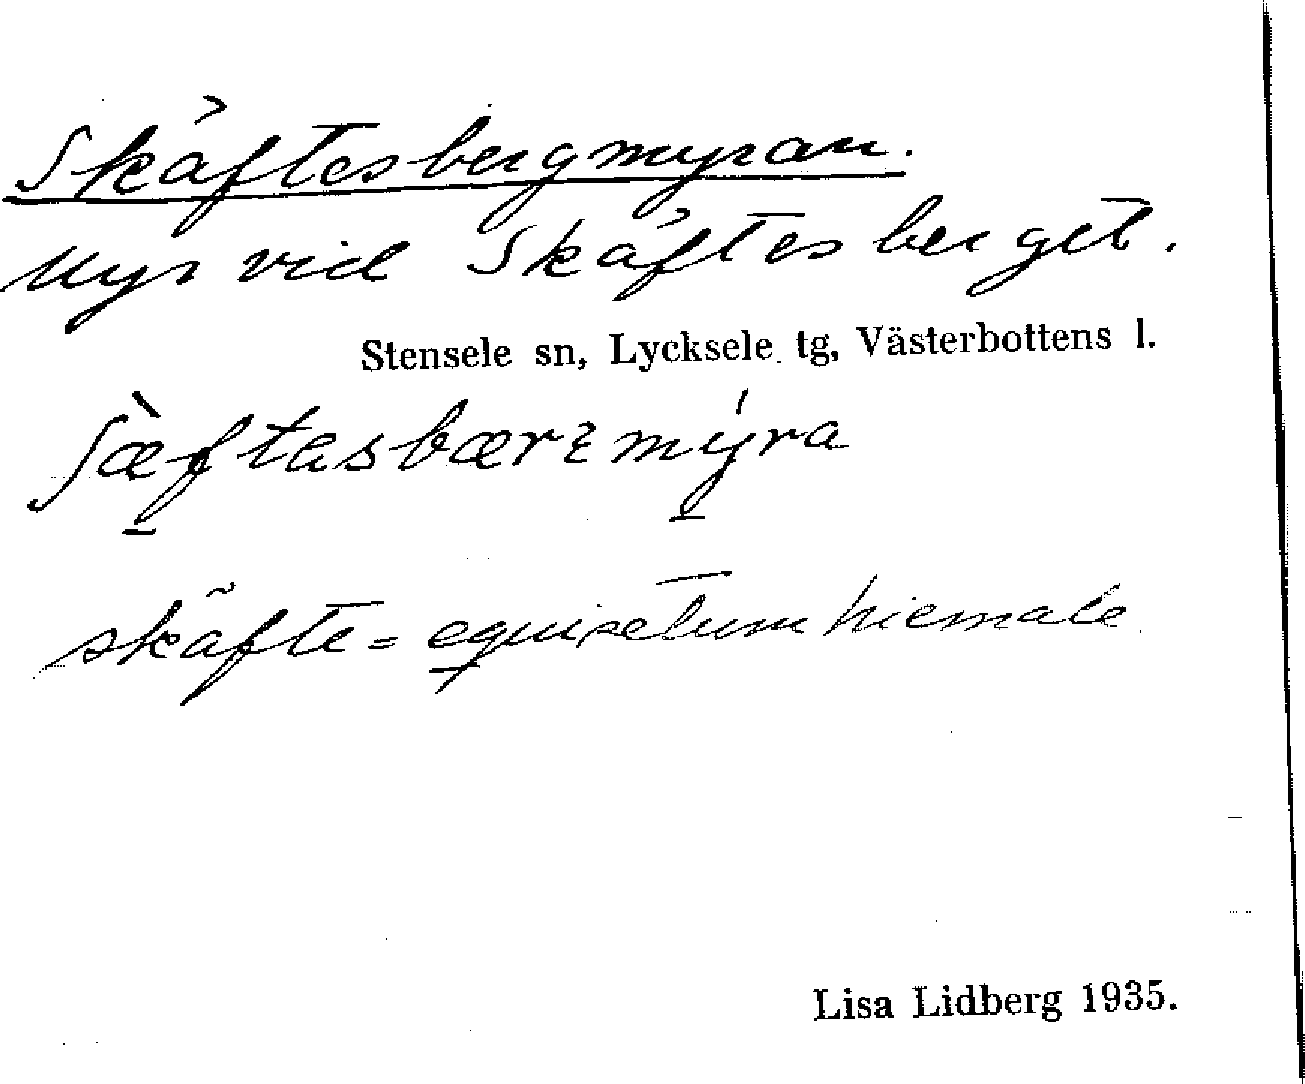 Skäftesbergmyran.
Myr vid Skäftesberget.
Stensele sn, Lycksele tg, Västerbottens l.
ʃæ̀ftasbærɛmýra
skäfte = equisetum hiemale
Lisa Lidberg 1935.